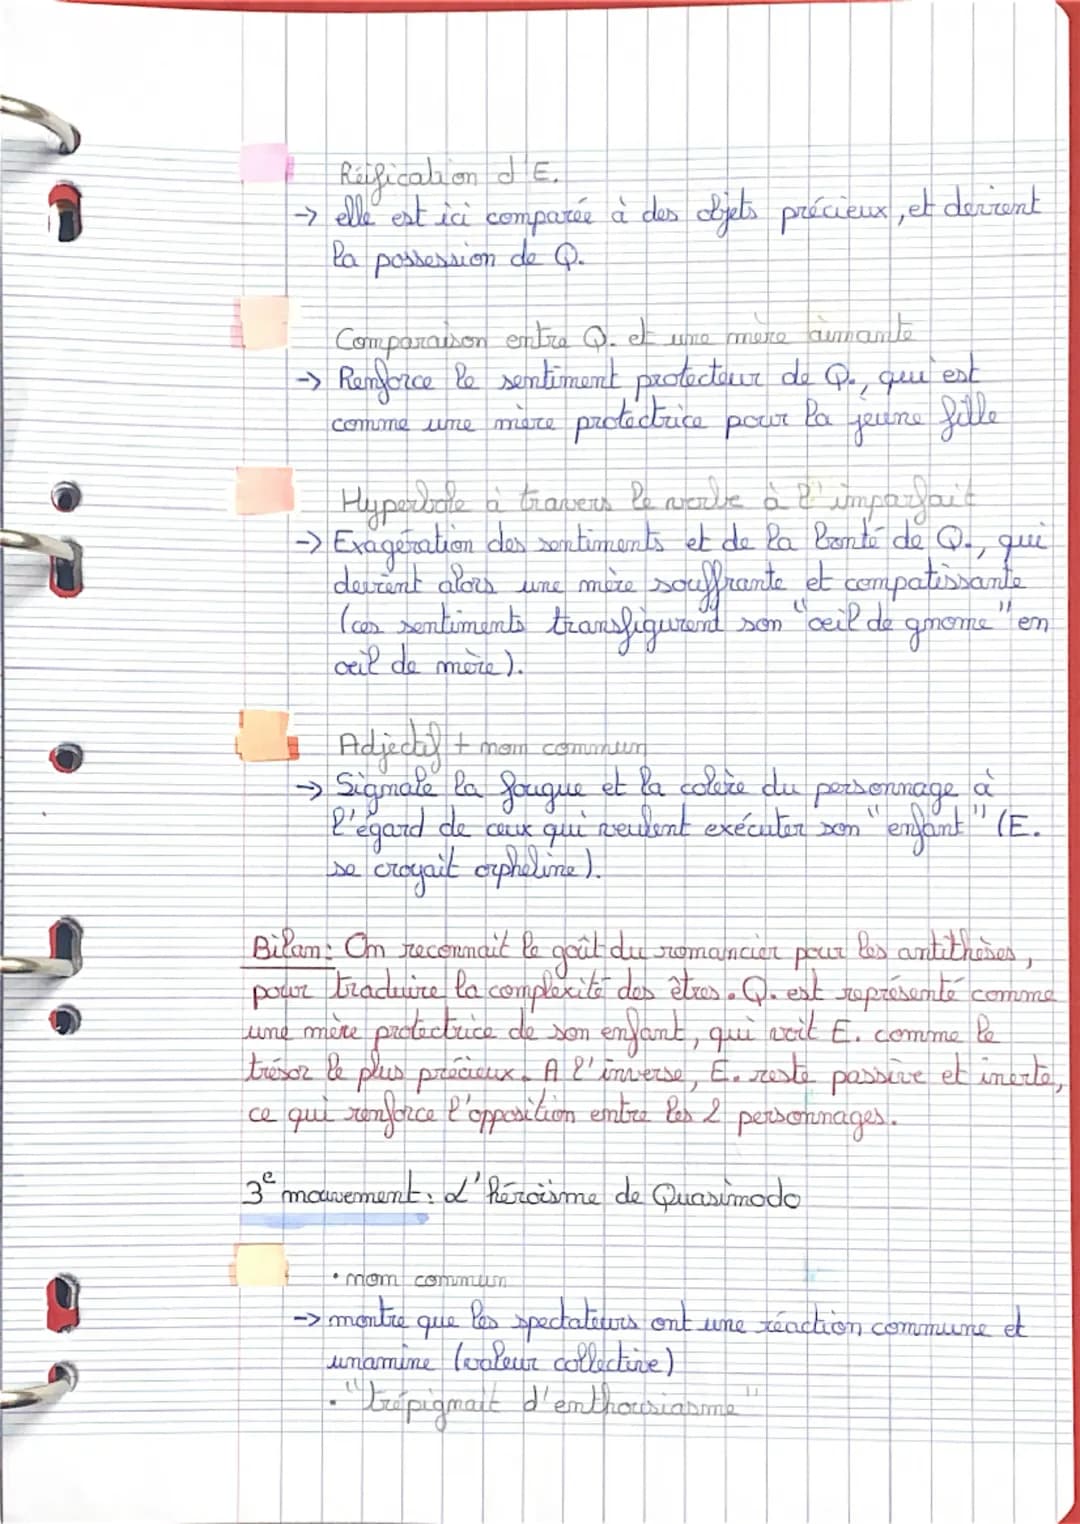 Réification d'E.
-> elle est ici comparée à des objets précieux, et devient
la possession de Q.
Comparaison entre Q. et une mère aimante
-> Renforce le sentiment protecteur de Q., qui est
comme une mère protectrice pour la jeune fille
Hyperbole à travers le verbe à l'imparfait
-> Exagération des sentiments et de la bonté de Q., qui
devient alors une mère souffrante et compatissante
(ces sentiments transfigurent son "oeil de gnome" en
oeil de mère).
Adjectif + nom commun
-> Signale la fougue et la colère du personnage à
l'égard de ceux qui veulent exécuter son "enfant" (E.
se croyait orpheline).
Bilan: On reconnait le goût du romancier pour les antithèses,
pour traduire la complexité des êtres. Q. est représenté comme
une mère protectrice de son enfant, qui voit E. comme le
trésor le plus précieux. A l'inverse, E. reste passive et inerte,
ce qui renforce l'opposition entre les 2 personnages.
3e mouvement: L'héroïsme de Quasimodo
• nom commun
-> montre que les spectateurs ont une réaction commune et
unanime (valeur collective)
• "trépignait d'enthousiasme"